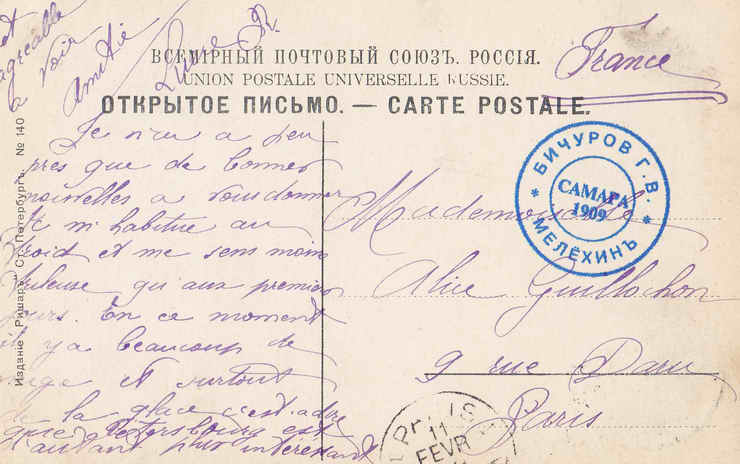 et
agreable
a voir
Amitié
ВСЕМІРНЫЙ ПОЧТОВЫЙ СОЮЗЪ. РОССІЯ.
UNION POSTALE UNIVERSELLE RUSSIE.
ОТКРЫТОЕ ПИСЬМО. — CARTE POSTALE.
France
Je n'ai a peu
pres que de bonnes
nouvelles a vous donner
Je m'habitue au
froid et me sens moins
qu'aux premiers
jours. En ce moment
il y a beaucoup de
neige et surtout
de la glace c'est a dire
que Petersbourg est
d'autant plus interessant
Mademoiselle
Alice Guillochon
9 rue Daru
Paris
БИЧУРОВ Г. В.
САМАРА
1909
МЕЛЁХИНЪ
PARIS
11
FEVR
Изданіе „Ришаръ“ Ст. Петербургъ. № 140